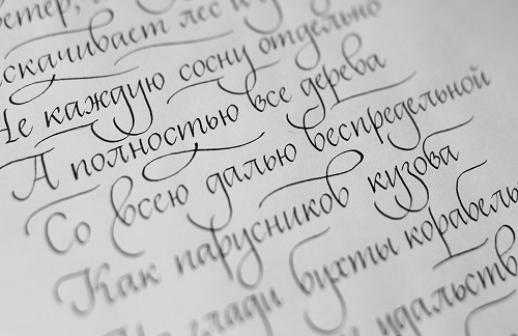 ветер,
скачивает лес и
Не каждую сосну отдельно
А полностью все дерева
Со всею далью беспредельной
Как парусников кузова
глади бухты корабель
удальств